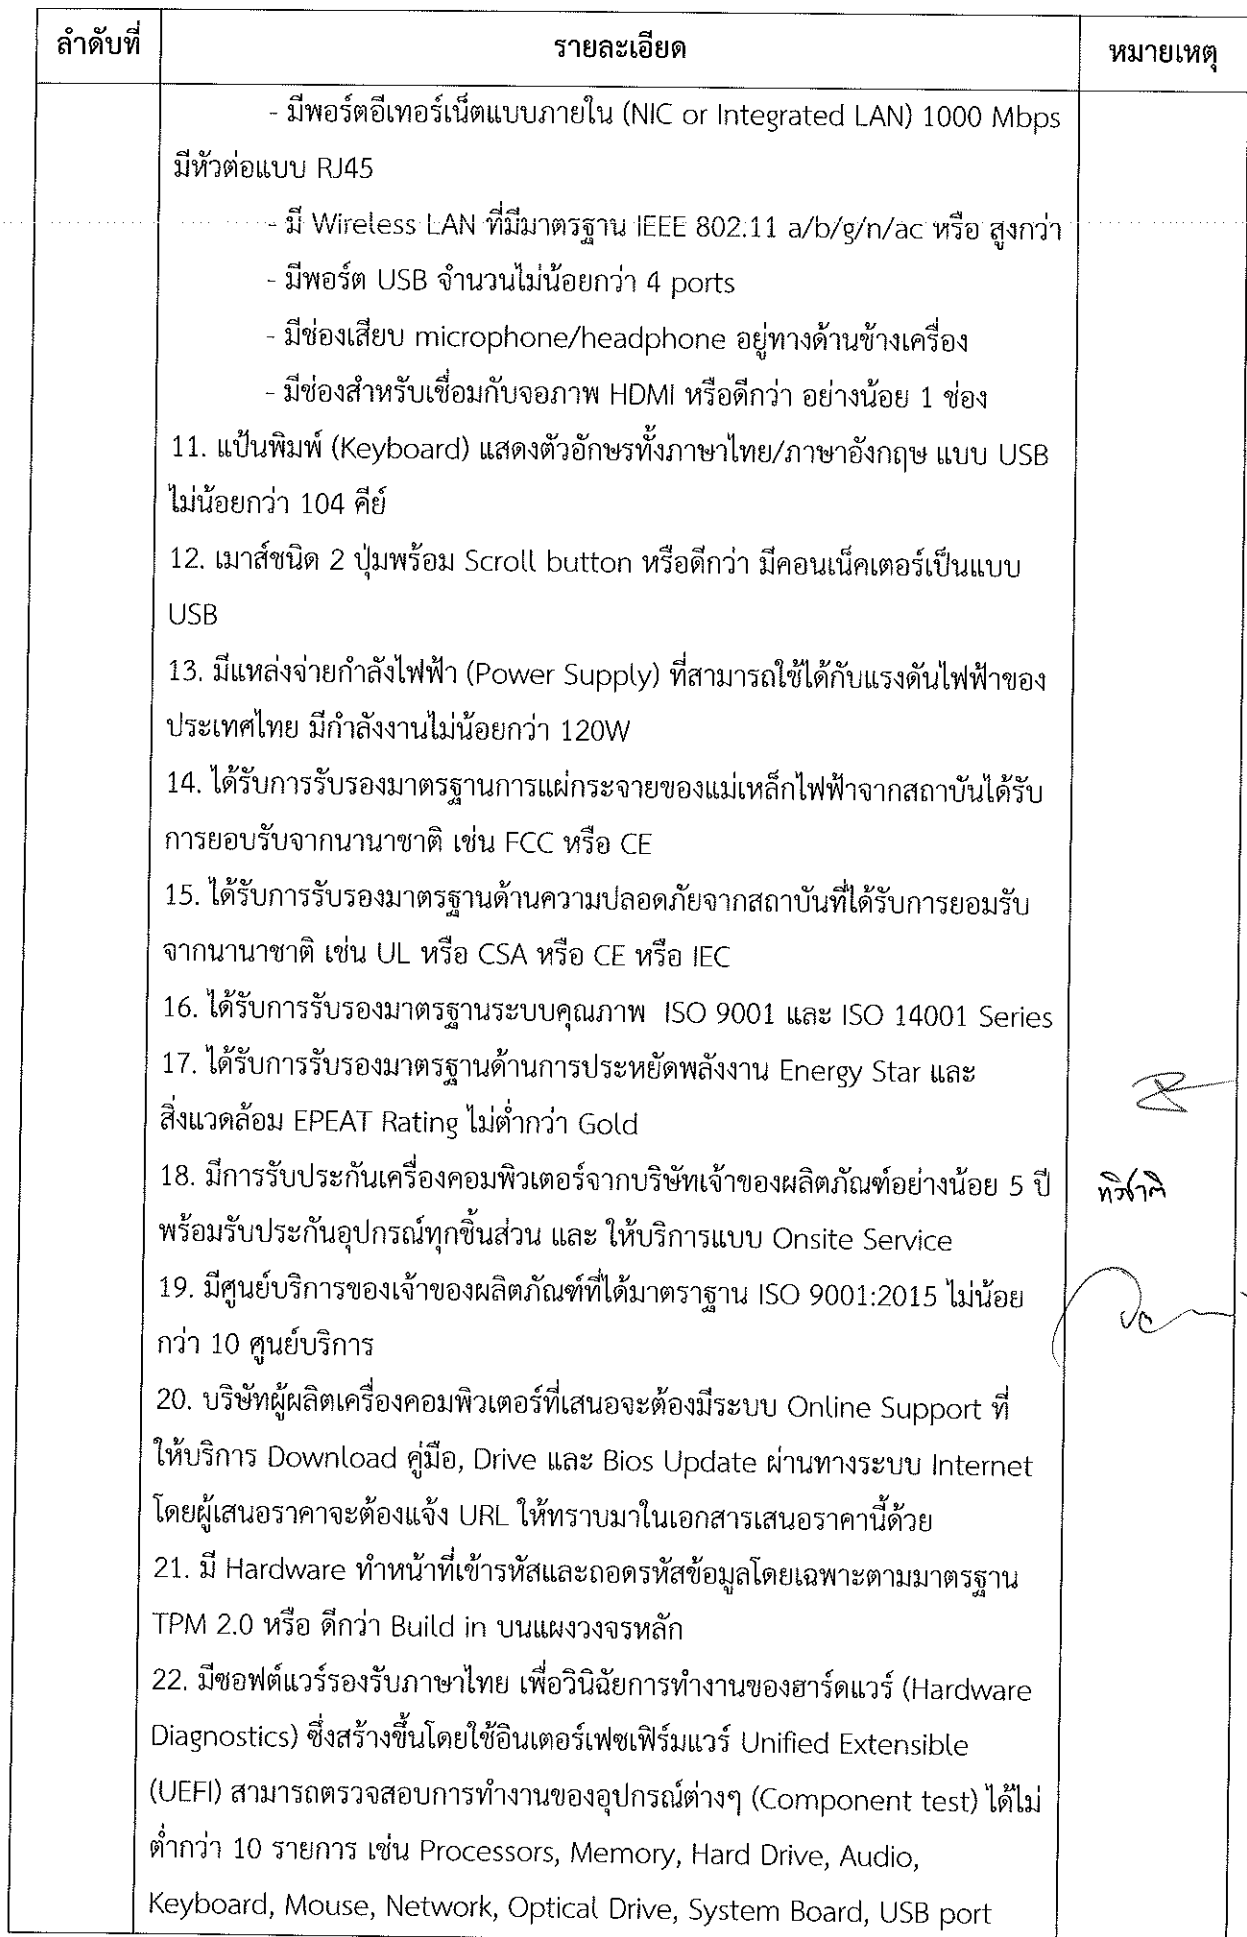 ลำดับที่ รายละเอียด หมายเหตุ
- มีพอร์ตอีเทอร์เน็ตแบบภายใน (NIC or Integrated LAN) 1000 Mbps
มีหัวต่อแบบ RJ45
- มี Wireless LAN ที่มีมาตรฐาน IEEE 802.11 a/b/g/n/ac หรือ สูงกว่า
- มีพอร์ต USB จำนวนไม่น้อยกว่า 4 ports
- มีช่องเสียบ microphone/headphone อยู่ทางด้านข้างเครื่อง
- มีช่องสำหรับเชื่อมกับจอภาพ HDMI หรือดีกว่า อย่างน้อย 1 ช่อง
11. แป้นพิมพ์ (Keyboard) แสดงตัวอักษรทั้งภาษาไทย/ภาษาอังกฤษ แบบ USB
ไม่น้อยกว่า 104 คีย์
12. เมาส์ชนิด 2 ปุ่มพร้อม Scroll button หรือดีกว่า มีคอนเน็คเตอร์เป็นแบบ
USB
13. มีแหล่งจ่ายกำลังไฟฟ้า (Power Supply) ที่สามารถใช้ได้กับแรงดันไฟฟ้าของ
ประเทศไทย มีกำลังงานไม่น้อยกว่า 120W
14. ได้รับการรับรองมาตรฐานการแผ่กระจายของแม่เหล็กไฟฟ้าจากสถาบันได้รับ
การยอบรับจากนานาชาติ เช่น FCC หรือ CE
15. ได้รับการรับรองมาตรฐานด้านความปลอดภัยจากสถาบันที่ได้รับการยอมรับ
จากนานาชาติ เช่น UL หรือ CSA หรือ CE หรือ IEC
16. ได้รับการรับรองมาตรฐานระบบคุณภาพ ISO 9001 และ ISO 14001 Series
17. ได้รับการรับรองมาตรฐานด้านการประหยัดพลังงาน Energy Star และ
สิ่งแวดล้อม EPEAT Rating ไม่ต่ำกว่า Gold
18. มีการรับประกันเครื่องคอมพิวเตอร์จากบริษัทเจ้าของผลิตภัณฑ์อย่างน้อย 5 ปี
พร้อมรับประกันอุปกรณ์ทุกชิ้นส่วน และ ให้บริการแบบ Onsite Service
19. มีศูนย์บริการของเจ้าของผลิตภัณฑ์ที่ได้มาตราฐาน ISO 9001:2015 ไม่น้อย
กว่า 10 ศูนย์บริการ
20. บริษัทผู้ผลิตเครื่องคอมพิวเตอร์ที่เสนอจะต้องมีระบบ Online Support ที่
ให้บริการ Download คู่มือ, Drive และ Bios Update ผ่านทางระบบ Internet
โดยผู้เสนอราคาจะต้องแจ้ง URL ให้ทราบมาในเอกสารเสนอราคานี้ด้วย
21. มี Hardware ทำหน้าที่เข้ารหัสและถอดรหัสข้อมูลโดยเฉพาะตามมาตรฐาน
TPM 2.0 หรือ ดีกว่า Build in บนแผงวงจรหลัก
22. มีซอฟต์แวร์รองรับภาษาไทย เพื่อวินิฉัยการทำงานของฮาร์ดแวร์ (Hardware
Diagnostics) ซึ่งสร้างขึ้นโดยใช้อินเตอร์เฟซเฟิร์มแวร์ Unified Extensible
(UEFI) สามารถตรวจสอบการทำงานของอุปกรณ์ต่างๆ (Component test) ได้ไม่
ต่ำกว่า 10 รายการ เช่น Processors, Memory, Hard Drive, Audio,
Keyboard, Mouse, Network, Optical Drive, System Board, USB port